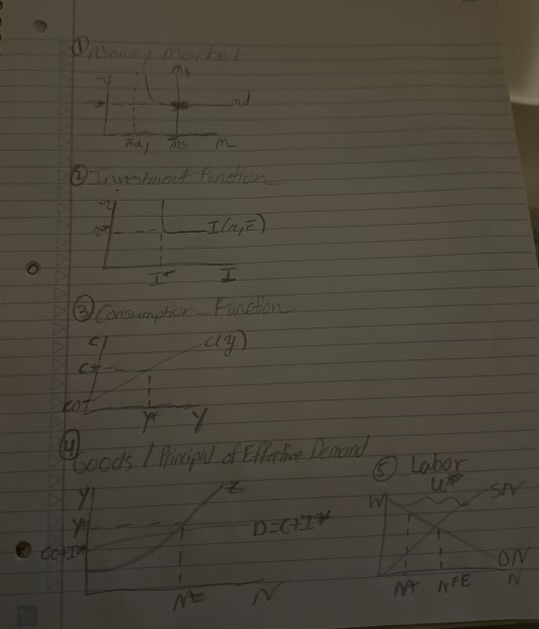 ① Money market
r
ms
r*
md
md,
ms
m
② Investment Function
r
r*
I(r,E)
I*
I
③ Consumption Function
C
C(y)
C*
Y*
Y
④
Goods / Principal of Effective Demand
Y
Z
Y*
D=C+I*
N
⑤ Labor
U*
W
SN
DN
N*
NFE
N